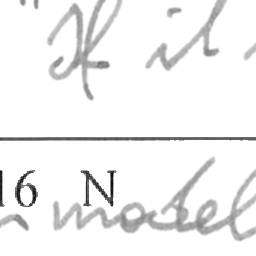 "If il
16 N
model